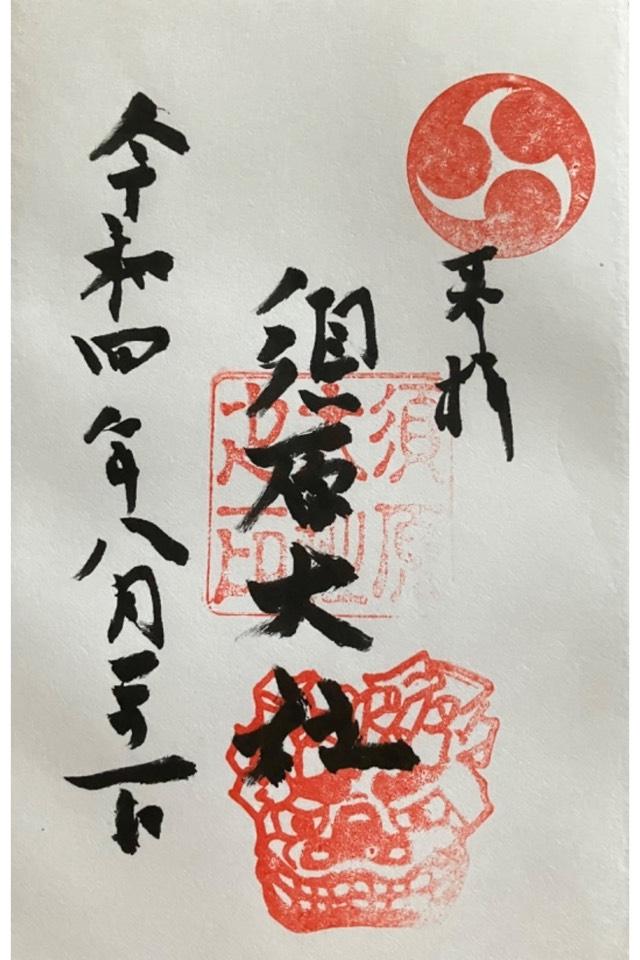 奉拝
須原大社
令和四年八月二十一日
須原
大社
之印